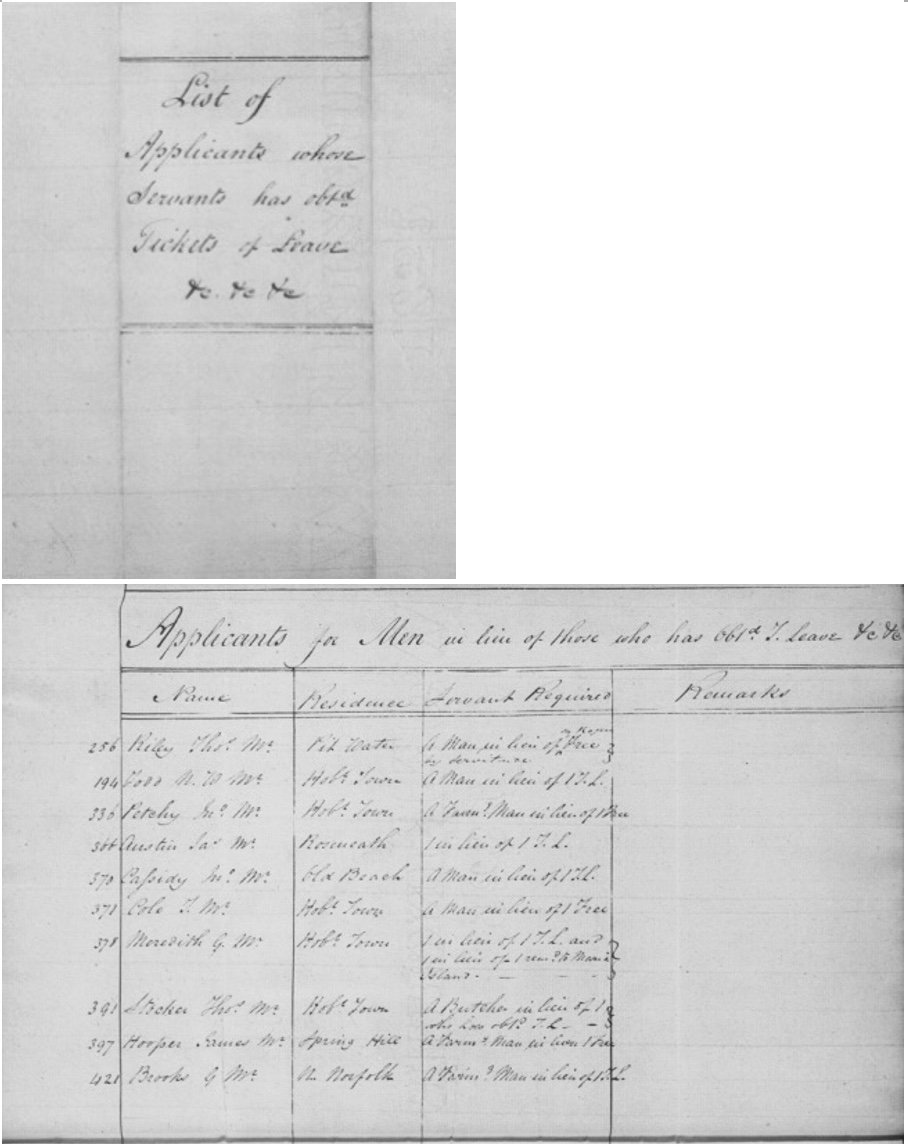 List of
Applicants whose
Servants has obtd
Tickets of Leave
&c. &c &c
Applicants for Men in lieu of those who has Obtd. T. Leave &c &c
Name Residence Servant Required Remarks
256 Riley Thos. Mr. Pit Water A Man in lieu of Free
by servitude
194 N. W Mr. Hobt. Town A Man in lieu of 1 T. L.
336 Petchy Jno. Mr. Hobt. Town A Farmg. Man in lieu of 1 Free
366 Austin Jas. Mr. Roseneath 1 in lieu of 1 T. L.
370 Cassidy Jno. Mr. Old Beach A Man in lieu of 1 T.L.
371 Cole T. Mr. Hobt. Town A Man in lieu of 1 Free
378 Meredith G. Mr. Hobt. Town 1 in lieu of 1 T. L. and
1 in lieu of 1 remd. to Maria
Island.
391 Stocker Thos. Mr. Hobt. Town A Butcher in lieu of 1
who has obtd. T. L.
397 Hooper James Mr. Spring Hill A Farmg. Man in lieu 1 Free
421 Brooks G Mr. N. Norfolk A Farmg. Man in lieu of 1 T.L.